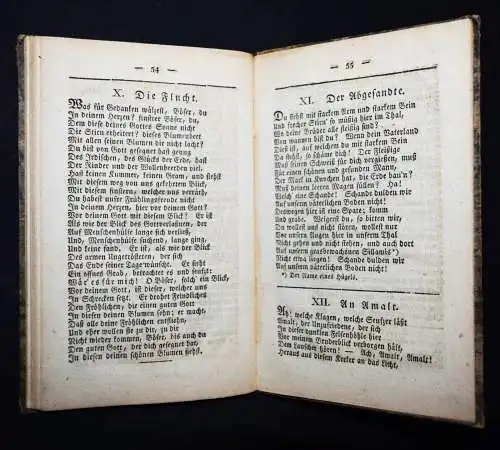 — 54 —
X. Die Flucht.
Was für Gedanken wälzest, Böser, du
In deinem Herzen? finstrer Böser, du,
Dem diese deines Gottes Sonne nicht
Die Stirn erheitert? dieses Blumenbeet
Mit allen seinen Blumen dir nicht lacht?
Du bist von Gott gesegnet, hast genug
Des Irdischen, des Glücks der Erde, hast
Der Rinder und der Wollenheerden viel,
Hast keinen Kummer, keinen Gram, und stehst
Mit diesem weg von uns gekehrten Blick,
Mit diesem finstern, welcher uns verräth,
Du habest unsre Frühlingsfreude nicht
In deinem Herzen, hier vor deinem Gott?
Vor deinem Gott mit diesem Blick? Er ist
Als wie der Blick des Gottverläugners, der
Auf Menschenhülfe lange sich verließ,
Und, Menschenhülfe suchend, lange ging,
Und keine fand, Er ist, als wie der Blick
Des armen Ungetrösteten, der sich
Das Ende seiner Tage wünscht. Er sieht
Ein offnes Grab, betrachtet es und seufzt:
Wär' es für mich! O Böser, solch ein Blick,
Vor deinem Gott, ist dieser, welcher uns
In Schrecken setzt. Er drohet Feindlichen
Dem Fröhlichen, die einen guten Gott
In diesen Blumen sehn; er macht,
Daß alle deine Fröhlichen entfliehn,
Und eher wollen sie zu dir, zu dir
Nicht wieder kommen, Böser, bis auch du
Den guten Gott, der dich gesegnet hat,
In diesen deinen schönen Blumen siehst.
— 55 —
XI. Der Abgesandte.
Du stehst mit starkem Arm und starkem Bein
Und frecher Stirn' so müßig hier im Thal,
Wo deine Brüder alle fleißig sind?
Von wannen bist du? Wenn dein Vaterland
Dies ist, auf welchem du mit starkem Bein
Fest stehst, so schäme dich! Der Fleißige
Muß seinen Schweiß für dich vergießen, muß
Für einen schönen und gesunden Mann,
Der Mark in Knochen hat, die Erde bau'n?
Muß deinen leeren Magen füllen? Ha!
Welch eine Schande! Schande dulden wir
Auf unserm väterlichen Boden nicht!
Deswegen hier ist eine Spate; komm
Und grabe. Weigerst du, so bitten wir,
Du wollest uns nicht stören, wollest nur
Vor unsern Augen hier in unserm Thal
Nicht gehen und nicht stehen, und auch dort
Auf unserm unübersehbaren Sillanis*)
Nicht etwa liegen! Schande dulden wir
Auf unserm väterlichen Boden nicht!
*) Der Name eines Hügels.
XII. An Amalt.
Ah! welche Klagen, welche Seufzer läßt
Amalt, der Unzufriedene, der sich
In dieser dunkeln Felsenhöhle hier
Vor meinem Bruderblick verborgen hält,
Den Lauscher hören! — Ach, Amalt, Amalt!
Heraus aus diesem Kerker an das Licht,